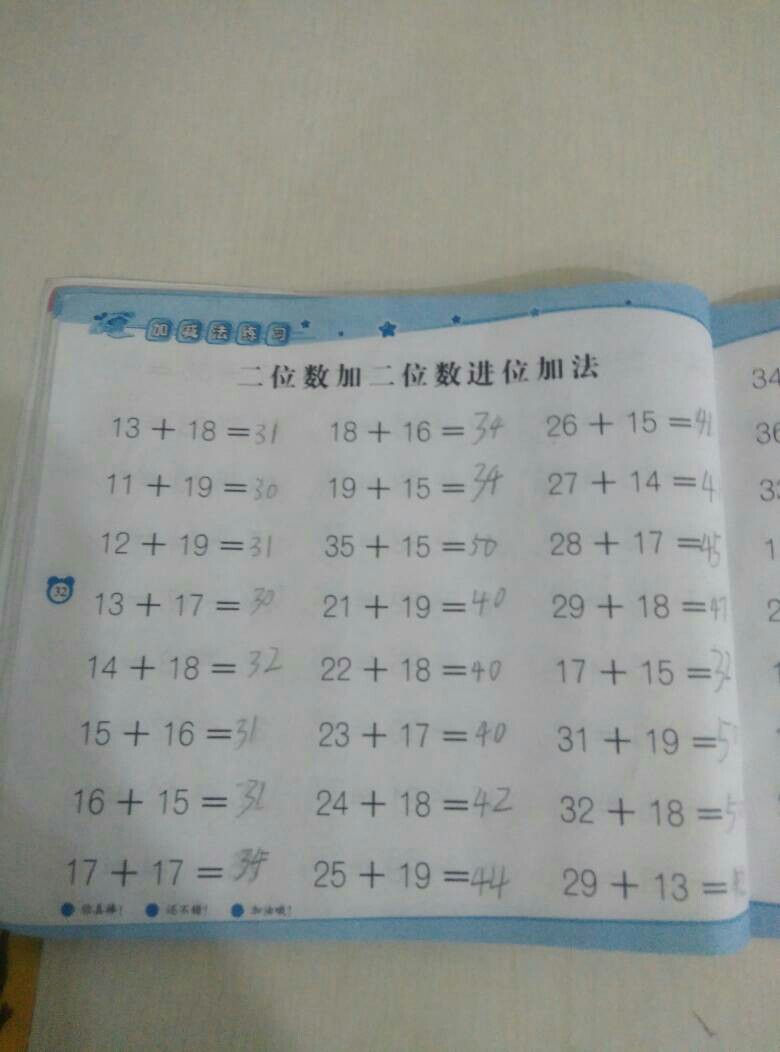 加减法练习
二位数加二位数进位加法
34
13 + 18 = 31 18 + 16 = 34 26 + 15 = 41
36
11 + 19 = 30 19 + 15 = 34 27 + 14 = 4
12 + 19 = 31 35 + 15 = 50 28 + 17 = 45
1
32
13 + 17 = 30 21 + 19 = 40 29 + 18 = 47
2
14 + 18 = 32 22 + 18 = 40 17 + 15 = 32
15 + 16 = 31 23 + 17 = 40 31 + 19 = 5
16 + 15 = 31 24 + 18 = 42 32 + 18 = 5
17 + 17 = 25 + 19 = 44 29 + 13 =
你真棒! 还不错! 加油哦!